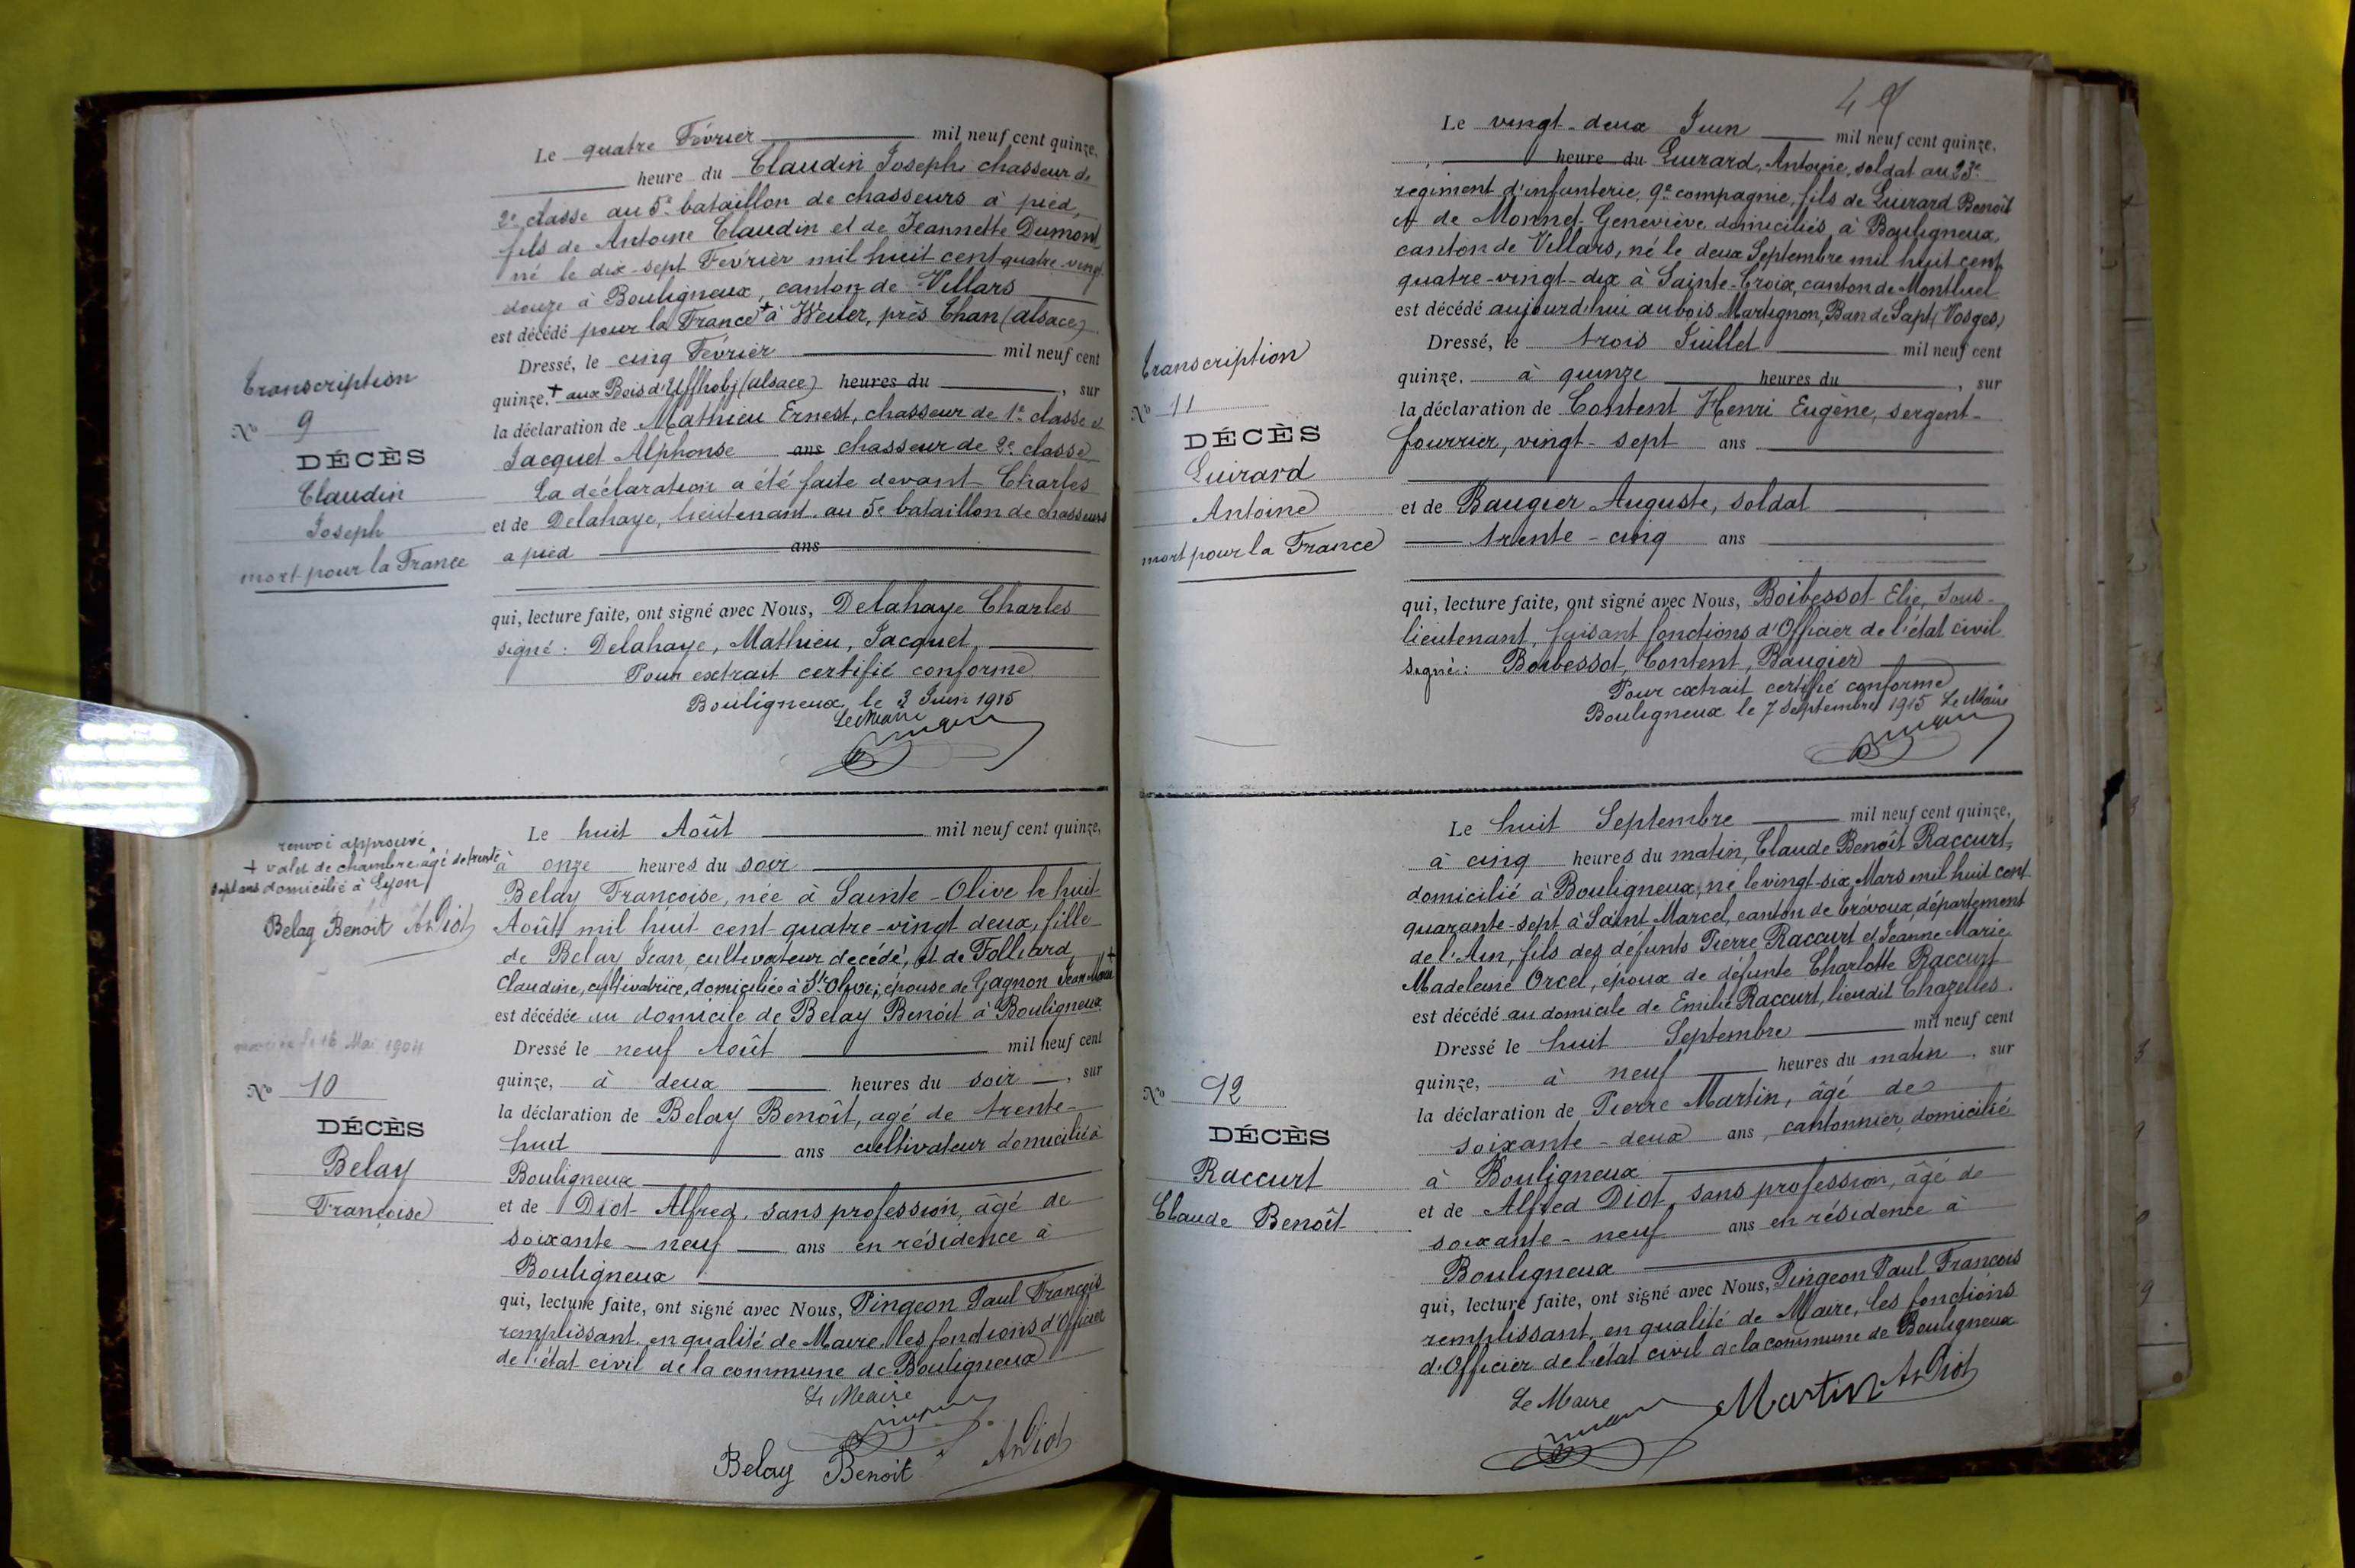 Le quatre Février mil neuf cent quinze,
heure du Claudin Joseph chasseur de
2e classe au 5e bataillon de chasseurs à pied,
fils de Antoine Claudin et de Jeannette Dumont
né le dix-sept Février mil huit cent quatre-vingt
douze à Bouligneux, canton de Villars
est décédé pour la France + à Weiler, près Chan (alsace)
Dressé, le cinq Février mil neuf cent
quinze, + aux Bois d'Uffholz (alsace) heures du , sur
la déclaration de Mathieu Ernest, chasseur de 1e classe et
Jacquet Alphonse ans chasseur de 2e classe
La déclaration a été faite devant Charles
et de Delahaye, lieutenant au 5e bataillon de chasseurs
a pied ans
qui, lecture faite, ont signé avec Nous, Delahaye Charles
signé : Delahaye, Mathieu, Jacquet,
Pour extrait certifié conforme
Bouligneux, le 3 Juin 1915
Le Maire
transcription
No 9
DÉCÈS
Claudin
Joseph
mort pour la France
Le huit Août mil neuf cent quinze,
à onze heures du soir
Belay Françoise, née à Sainte-Olive le huit
Août mil huit cent quatre-vingt deux, fille
de Belay Jean, cultivateur décédé, et de Folliard
Claudine, cultivatrice, domiciliée à Ste Olive; épouse de Gagnon Jean Marie +
est décédée au domicile de Belay Benoit à Bouligneux
Dressé le neuf Août mil neuf cent
quinze, à deux heures du soir , sur
la déclaration de Belay Benoît, agé de trente-
huit ans cultivateur domicilié à
Bouligneux
et de Diot Alfred, sans profession, âgé de
soixante-neuf ans en résidence à
Bouligneux
qui, lecture faite, ont signé avec Nous, Pingeon Paul François
remplissant en qualité de Maire, les fonctions d'Officier
de l'état civil de la commune de Bouligneux
Le Maire
Belay Benoit An Diot
renvoi approuvé
+ valet de chambre âgé de trente
sept ans domicilié à Lyon
Belay Benoit An Diot
mariée le 16 Mai 1904
No 10
DÉCÈS
Belay
Françoise
4
Le vingt-deux Juin mil neuf cent quinze,
heure du Luirard, Antoine, soldat au 23e
regiment d'infanterie, 9e compagnie, fils de Luirard Benoit
et de Monnet Geneviève domiciliés à Bouligneux,
canton de Villars, né le deux Septembre mil huit cent
quatre-vingt-dix à Sainte-Croix, canton de Montluel
est décédé aujourd'hui au bois Martignon, Ban de Sapt (Vosges)
Dressé, le trois Juillet mil neuf cent
quinze, à quinze heures du , sur
la déclaration de Content Henri Eugène, sergent-
fourrier, vingt-sept ans
et de Baugier Auguste, soldat
trente-cinq ans
qui, lecture faite, ont signé avec Nous, Boibessot Elie, Sous-
lieutenant, faisant fonctions d'Officier de l'état civil
signé : Boibessot, Content, Baugier
Pour extrait certifié conforme
Bouligneux le 7 Septembre 1915 Le Maire
transcription
No 11
DÉCÈS
Luirard
Antoine
mort pour la France
Le huit Septembre mil neuf cent quinze,
à cinq heures du matin, Claude Benoît Raccurt,
domicilié à Bouligneux, né le vingt-six Mars mil huit cent
quarante-sept à Saint Marcel, canton de Trévoux, département
de l'Ain, fils des défunts Pierre Raccurt et Jeanne Marie
Madeleine Orcel, époux de défunte Charlotte Raccurt
est décédé au domicile de Emilie Raccurt, lieudit Chazelles.
Dressé le huit Septembre mil neuf cent
quinze, à neuf heures du matin , sur
la déclaration de Pierre Martin, âgé de
soixante-deux ans, cantonnier, domicilié
à Bouligneux
et de Alfred Diot, sans profession, âgé de
soixante-neuf ans en résidence à
Bouligneux
qui, lecture faite, ont signé avec Nous, Pingeon Paul François
remplissant en qualité de Maire, les fonctions
d'Officier de l'état civil de la commune de Bouligneux
Le Maire
Martin An Diot
No 12
DÉCÈS
Raccurt
Claude Benoît